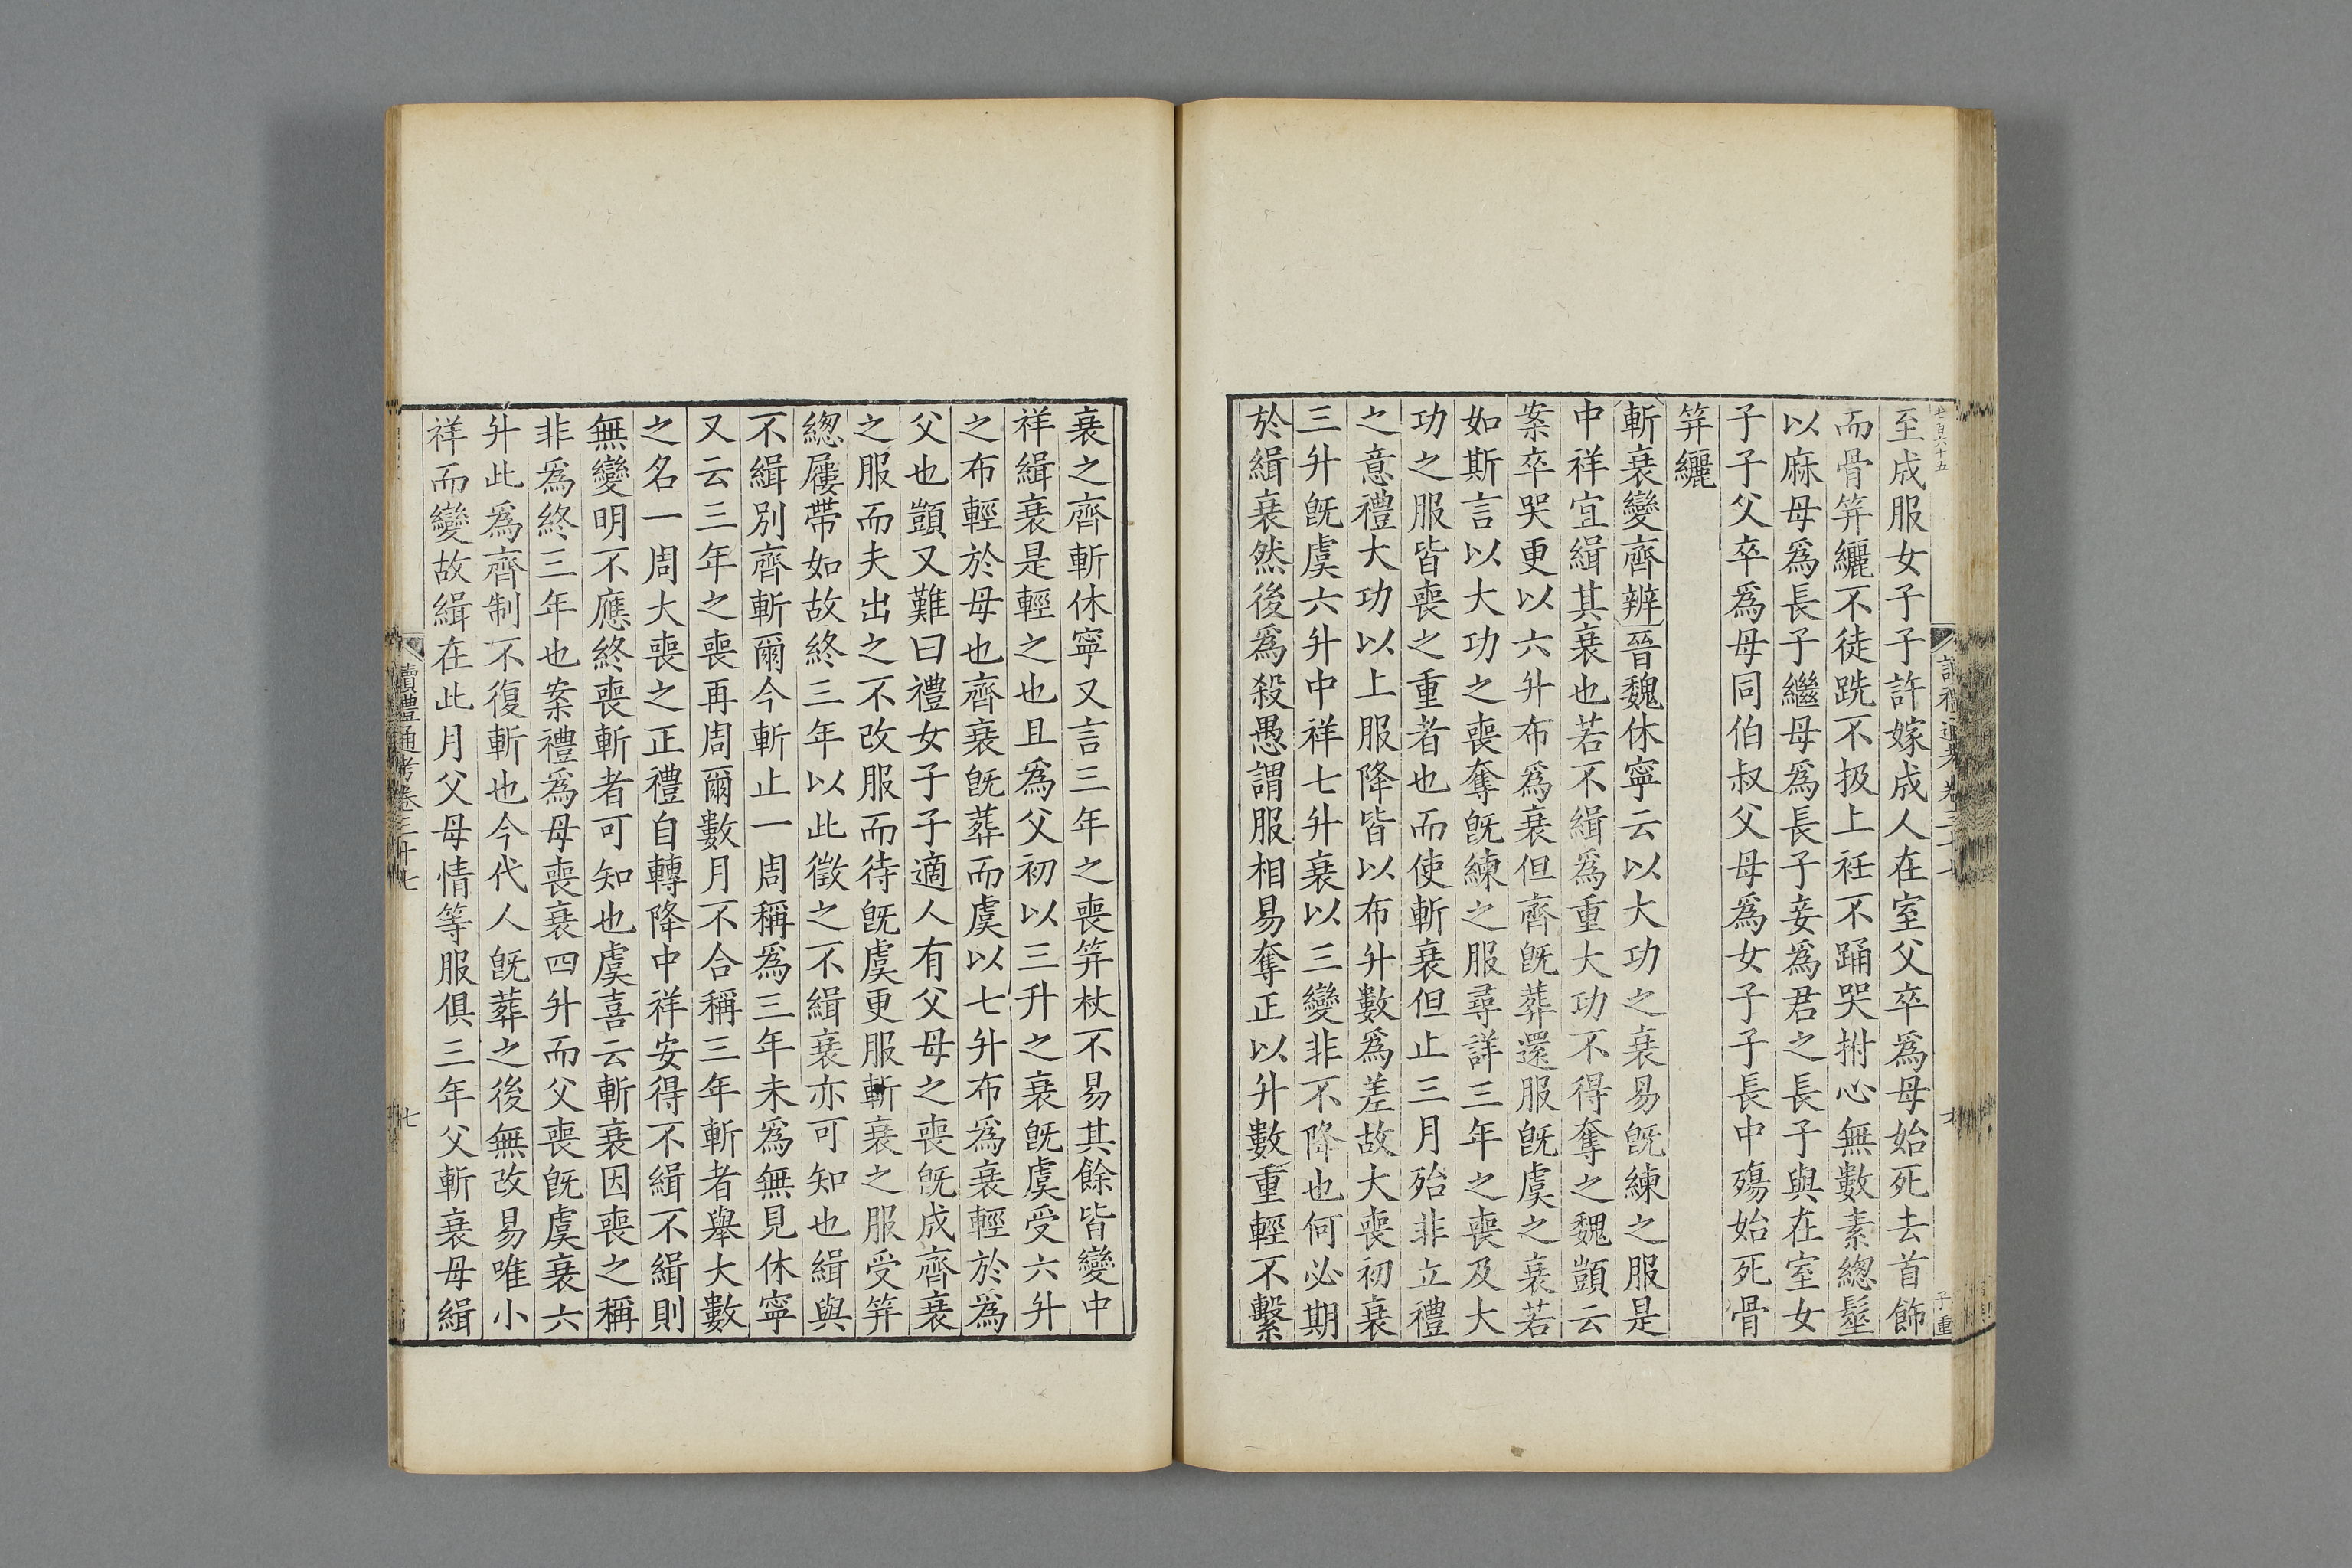 七百六十五
至成服女子子許嫁成人在室父卒爲母始死去首飾
而骨笄纚不徒跣不扱上衽不踊哭拊心無數素總髽
以麻母爲長子繼母爲長子妾爲君之長子與在室女
子子父卒爲母同伯叔父母爲女子子長中殤始死骨
笄纚
斬衰變齊辨晉魏休寧云以大功之衰易旣練之服是
中祥宜緝其衰也若不緝爲重大功不得奪之魏顗云
案卒哭更以六升布爲衰但齊旣葬還服旣虞之衰若
如斯言以大功之喪奪旣練之服尋詳三年之喪及大
功之服皆喪之重者也而使斬衰但止三月殆非立禮
之意禮大功以上服降皆以布升數爲差故大喪初衰
三升旣虞六升中祥七升衰以三變非不降也何必期
於緝衰然後爲殺愚謂服相易奪正以升數重輕不繫
衰之齊斬休寧又言三年之喪笄杖不易其餘皆變中
祥緝衰是輕之也且爲父初以三升之衰旣虞受六升
之布輕於母也齊衰旣葬而虞以七升布爲衰輕於爲
父也顗又難曰禮女子子適人有父母之喪旣成齊衰
之服而夫出之不改服而待旣虞更服斬衰之服受笄
總屨帶如故終三年以此徵之不緝衰亦可知也緝與
不緝別齊斬爾今斬止一周稱爲三年未爲無見休寧
又云三年之喪再周爾數月不合稱三年斬者舉大數
之名一周大喪之正禮自轉降中祥安得不緝不緝則
無變明不應終喪斬者可知也虞喜云斬衰因喪之稱
非爲終三年也案禮爲母喪衰四升而父喪旣虞衰六
升此爲齊制不復斬也今代人旣葬之後無改易唯小
祥而變故緝在此月父母情等服俱三年父斬衰母緝
讀禮通考卷三十七
七